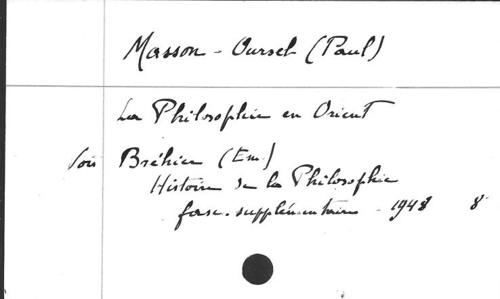 Masson-Oursel (Paul)
La Philosophie en Orient
Voir Bréhier (Em.)
Histoire de la Philosophie
fasc. supplémentaire - 1948 8°